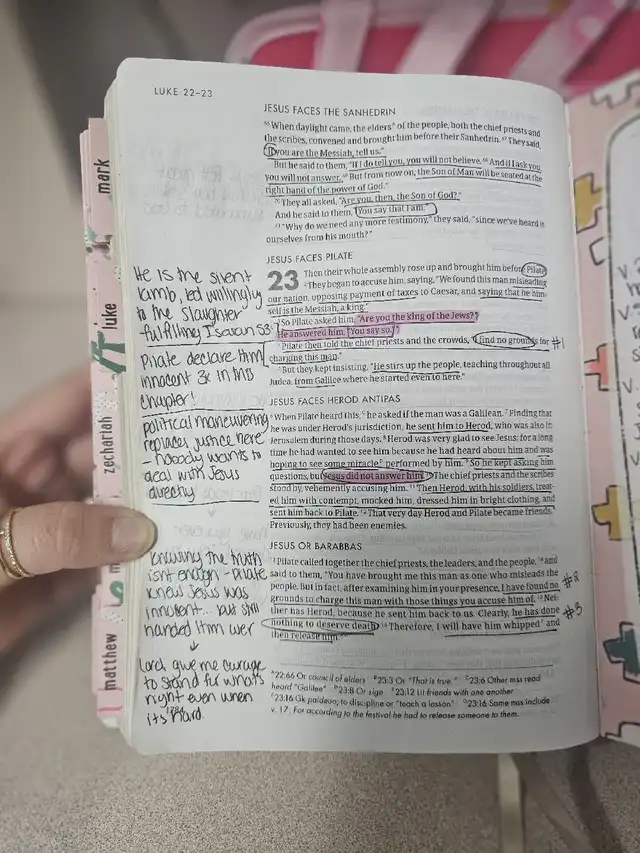 LUKE 22–23
JESUS FACES THE SANHEDRIN
66 When daylight came, the elders a of the people, both the chief priests and
the scribes, convened and brought him before their Sanhedrin. 67 They said,
"If you are the Messiah, tell us."
But he said to them, "If I do tell you, you will not believe. 68 And if I ask you,
you will not answer. 69 But from now on, the Son of Man will be seated at the
right hand of the power of God."
70 They all asked, "Are you, then, the Son of God?"
And he said to them, "You say that I am."
71 "Why do we need any more testimony," they said, "since we've heard it
ourselves from his mouth?"
JESUS FACES PILATE
23 Then their whole assembly rose up and brought him before Pilate.
2 They began to accuse him, saying, "We found this man misleading
our nation, opposing payment of taxes to Caesar, and saying that he him-
self is the Messiah, a king."
3 So Pilate asked him, "Are you the king of the Jews?"
He answered him, "You say so."
4 Pilate then told the chief priests and the crowds, "I find no grounds for #1
charging this man."
5 But they kept insisting, "He stirs up the people, teaching throughout all
Judea, from Galilee where he started even to here."
JESUS FACES HEROD ANTIPAS
6 When Pilate heard this, he asked if the man was a Galilean. 7 Finding that
he was under Herod's jurisdiction, he sent him to Herod, who was also in
Jerusalem during those days. 8 Herod was very glad to see Jesus; for a long
time he had wanted to see him because he had heard about him and was
hoping to see some miracle performed by him. 9 So he kept asking him
questions, but Jesus did not answer him. 10 The chief priests and the scribes
stood by, vehemently accusing him. 11 Then Herod, with his soldiers, treat-
ed him with contempt, mocked him, dressed him in bright clothing, and
sent him back to Pilate. 12 That very day Herod and Pilate became friends.
Previously, they had been enemies.
JESUS OR BARABBAS
13 Pilate called together the chief priests, the leaders, and the people, 14 and
said to them, "You have brought me this man as one who misleads the
people. But in fact, after examining him in your presence, I have found no #2
grounds to charge this man with those things you accuse him of. 15 Nei-
ther has Herod, because he sent him back to us. Clearly, he has done #3
nothing to deserve death. 16 Therefore, I will have him whipped and
then release him."
22:66 Or council of elders 23:3 Or "That is true." 23:6 Other mss read
heard "Galilee" 23:8 Or sign 23:12 Lit friends with one another
23:16 Gk paideuo; to discipline or "teach a lesson" 23:16 Some mss include
v. 17: For according to the festival he had to release someone to them.
He is the silent
lamb, led willingly
to the slaughter
fulfilling Isaiah 53
Pilate declare Him
innocent 3x in this
chapter!
political maneuvering
replaces justice here
– nobody wants to
deal with Jesus
directly
Knowing the truth
isnt enough - Pilate
knew Jesus was
innocent... but still
handed Him over
↓
Lord, give me courage
to stand for what's
right even when
its hard.
1284
mark
luke
zechariah
matthew